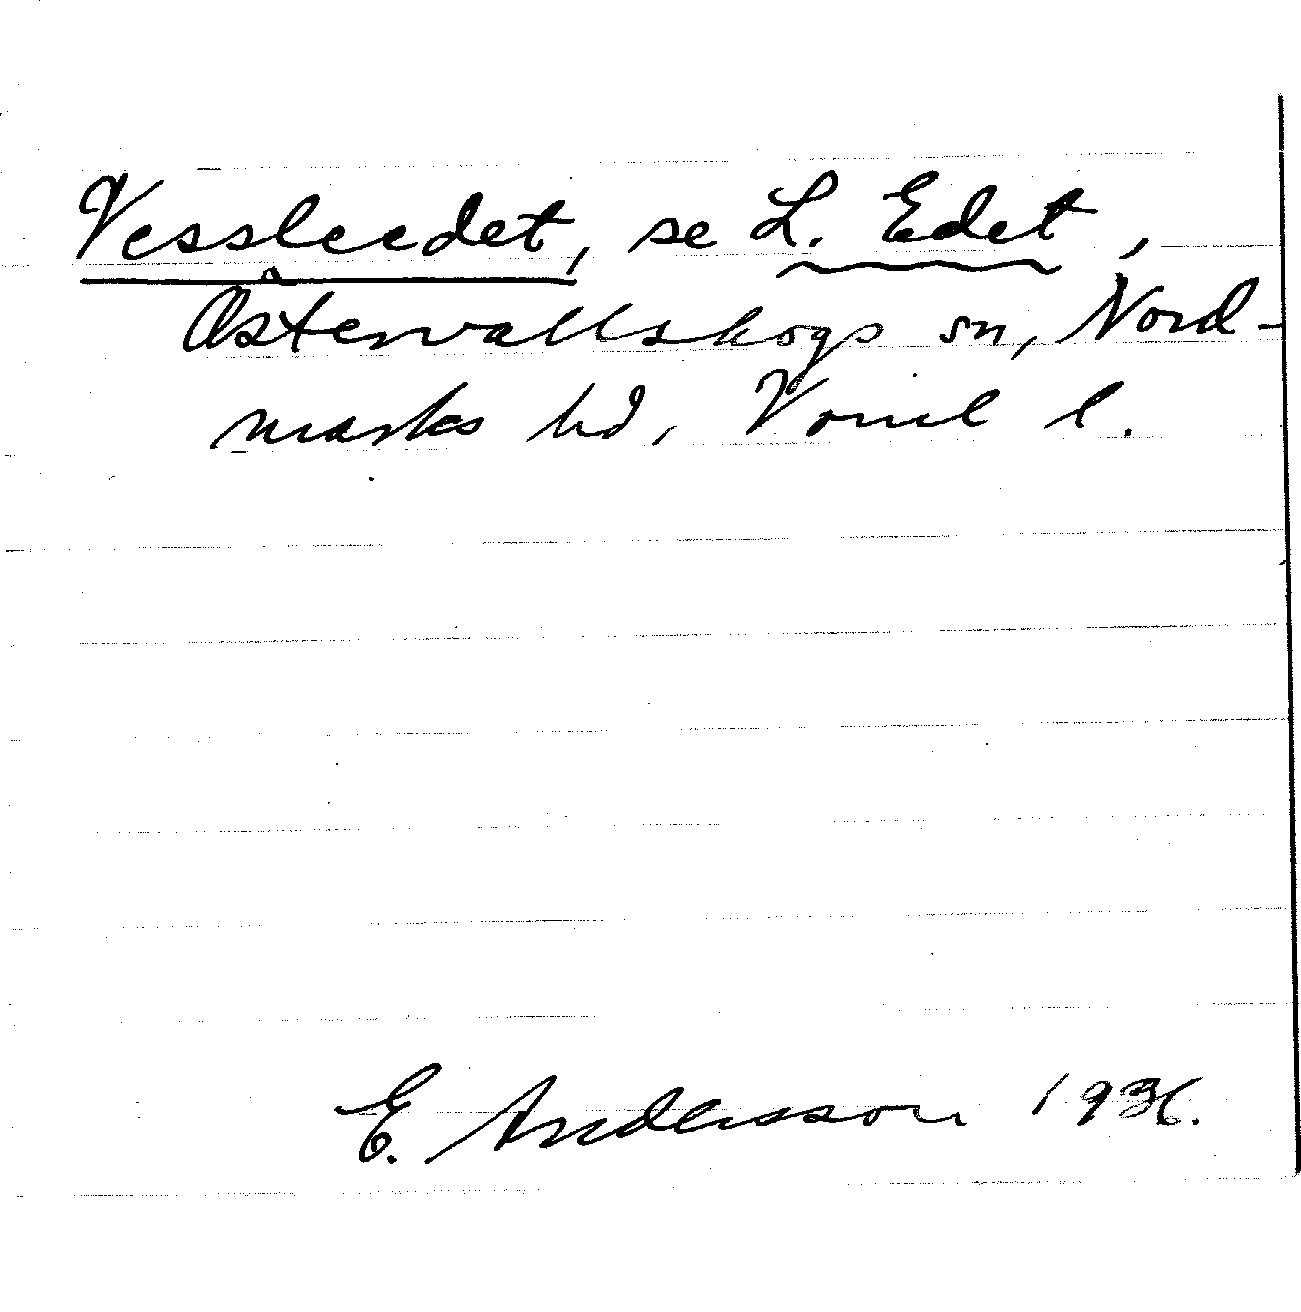 Vessleedet, se L. Edet,
Östervallskogs sn, Nord-
marks hd, Vrml l.
E. Andersson 1936.